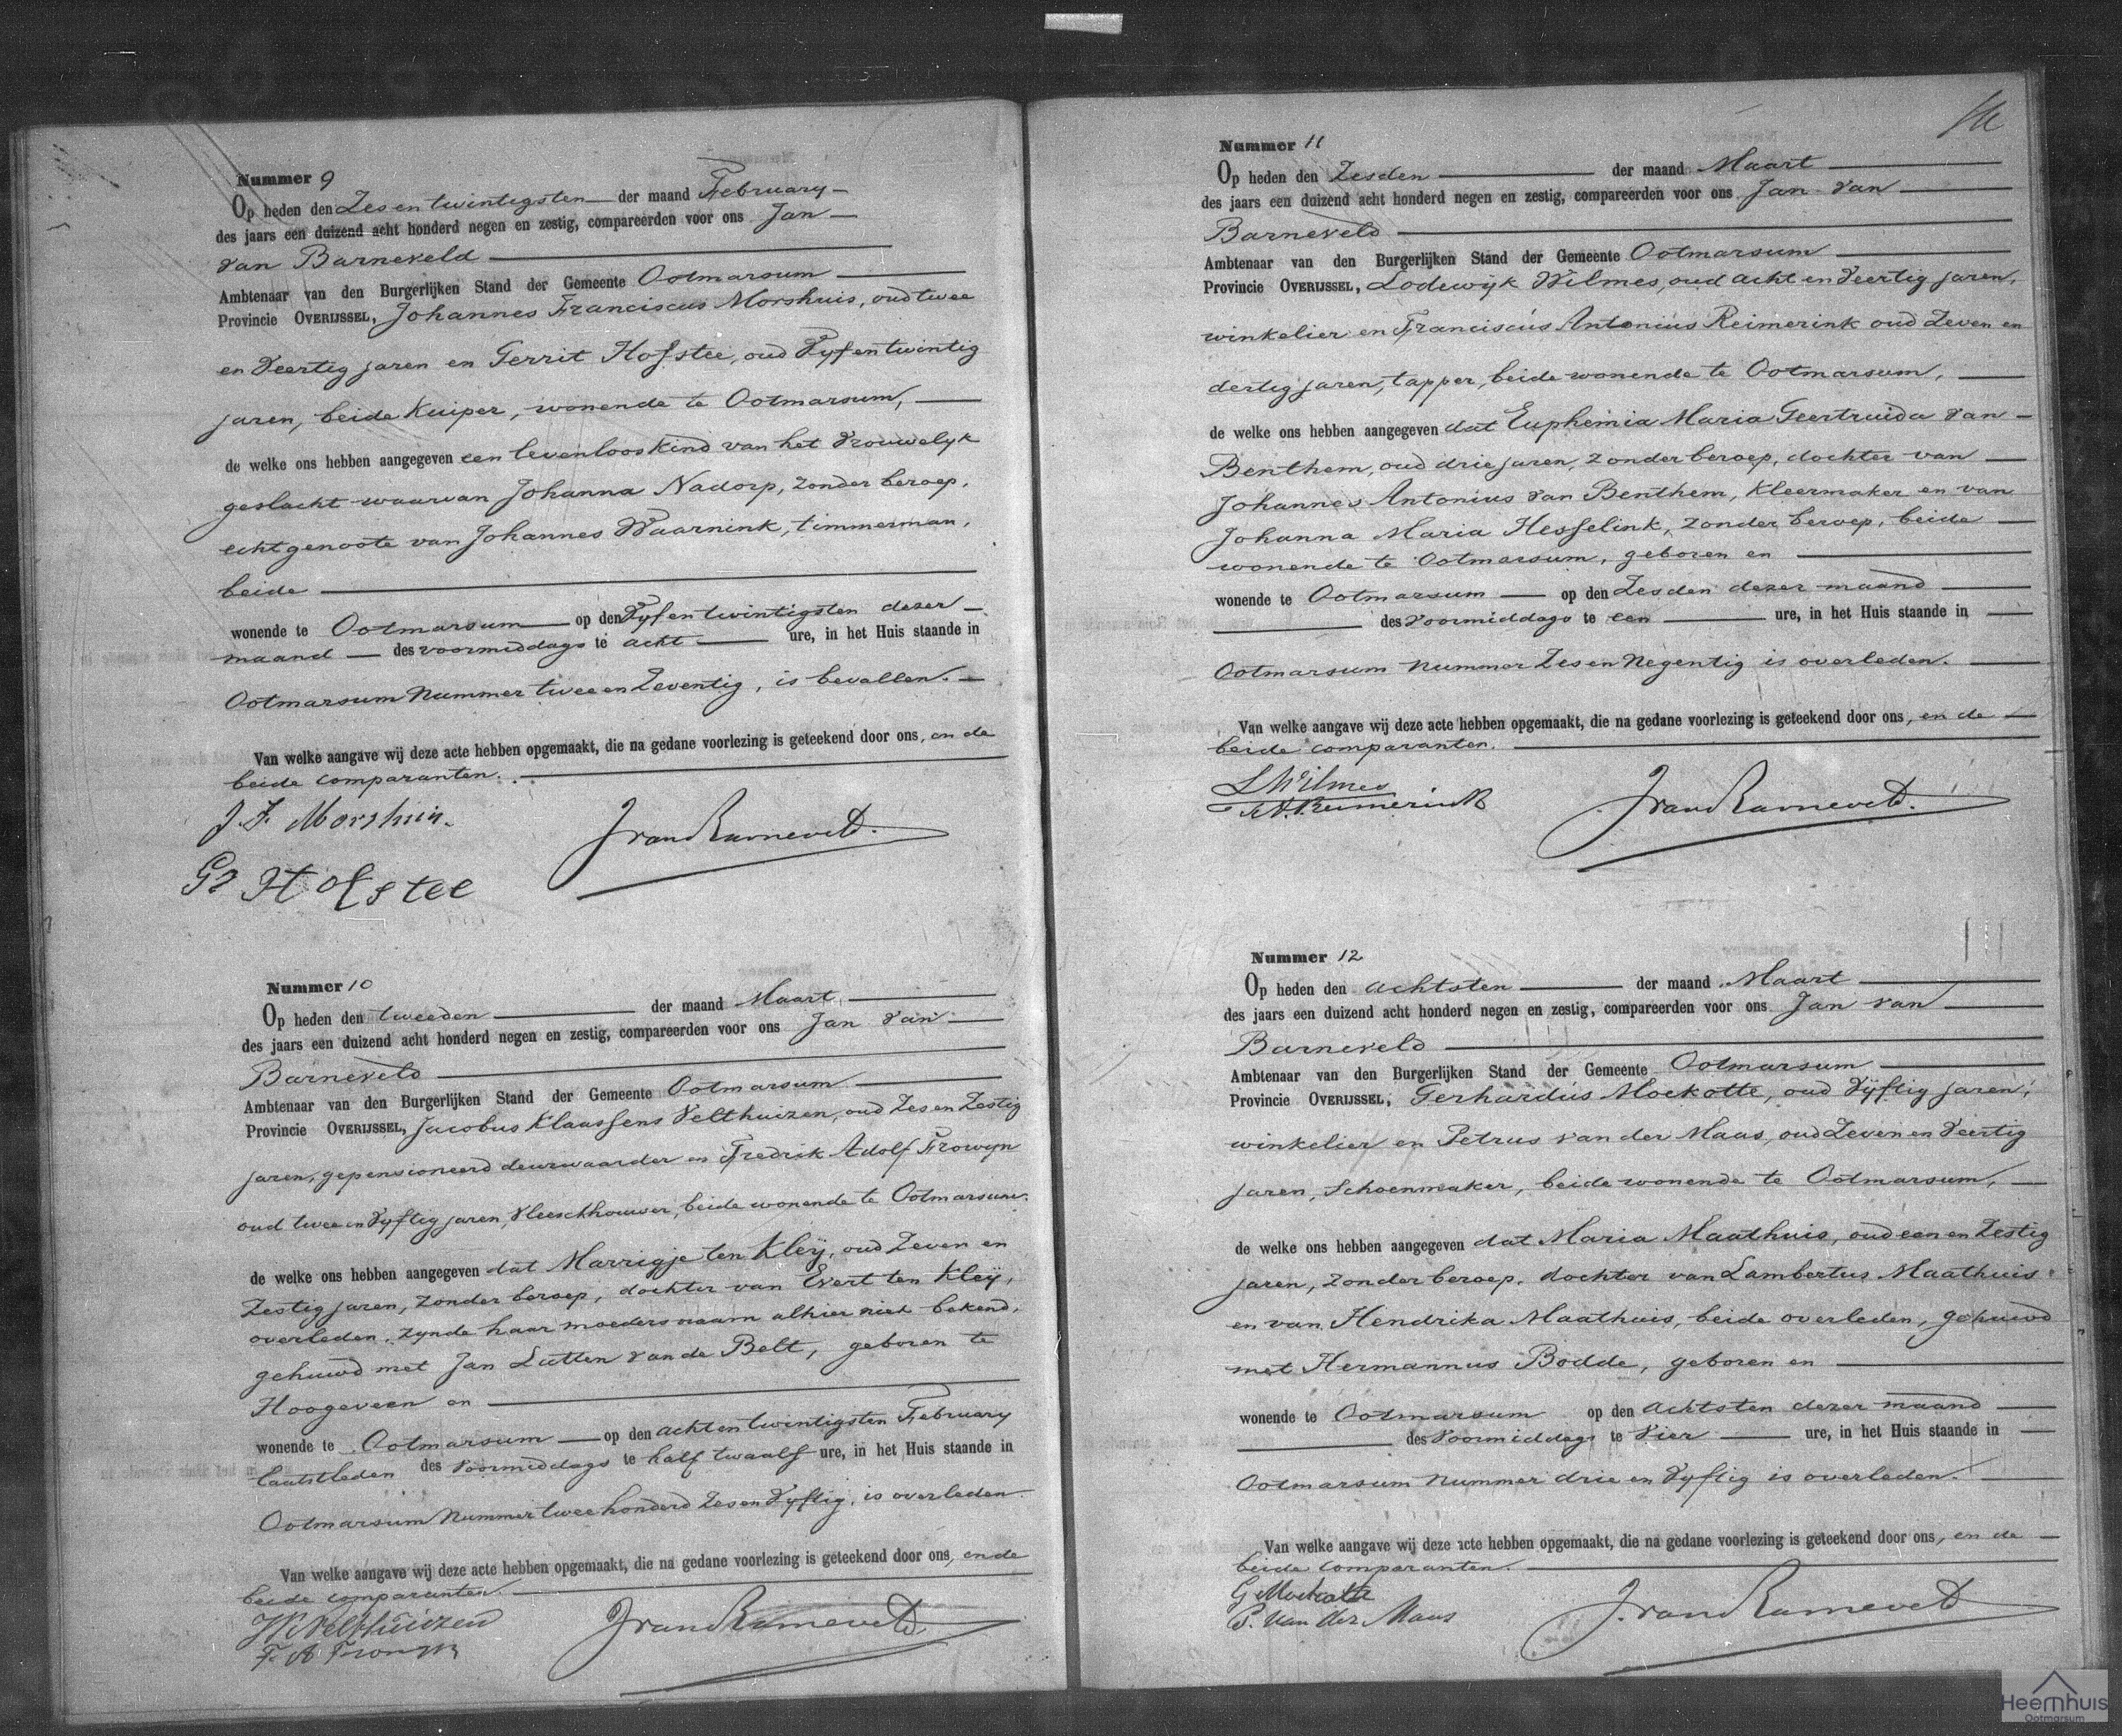 Nummer 9
Op heden den Zes en twintigsten der maand February
des jaars een duizend acht honderd negen en zestig, compareerden voor ons Jan
van Barneveld
Ambtenaar van den Burgerlijken Stand der Gemeente Ootmarsum
Provincie OVERIJSSEL, Johannes Franciscus Morshuis, oud twee
en Veertig jaren en Gerrit Hofstee, oud Vyf en twintig
jaren, beide Kuiper, wonende te Ootmarsum,
de welke ons hebben aangegeven een levenloos kind van het Vrouwelyk
geslacht waarvan Johanna Nadorp, zonder beroep,
echtgenoote van Johannes Waarnink, timmerman,
beide
wonende te Ootmarsum op den Vyf en twintigsten dezer
maand des voormiddags te acht ure, in het Huis staande in
Ootmarsum Nummer twee en Zeventig, is bevallen.
Van welke aangave wij deze acte hebben opgemaakt, die na gedane voorlezing is geteekend door ons, en de
beide comparanten.
J. F. Morshuis.
Gt Hofstee
J van Barneveld.
Nummer 10
Op heden den tweeden der maand Maart
des jaars een duizend acht honderd negen en zestig, compareerden voor ons Jan van
Barneveld
Ambtenaar van den Burgerlijken Stand der Gemeente Ootmarsum
Provincie OVERIJSSEL, Jacobus Klaassens Velthuizen, oud Zes en Zestig
jaren, gepensioneerd deurwaarder en Fredrik Adolf Frowyn
oud twee en Vyftig jaren, Vleeschhouwer, beide wonende te Ootmarsum.
de welke ons hebben aangegeven dat Marrigje ten Kleÿ, oud Zeven en
Zestig jaren, zonder beroep, dochter van Evert ten Kleÿ,
overleden, zynde haar moeders naam alhier niet bekend,
gehuwd met Jan Lutten van de Belt, geboren te
Hoogeveen en
wonende te Ootmarsum op den acht en twintigsten February
laatstleden des Voormiddags te half twaalf ure, in het Huis staande in
Ootmarsum Nummer twee honderd Zes en Vyftig, is overleden.
Van welke aangave wij deze acte hebben opgemaakt, die na gedane voorlezing is geteekend door ons, en de
beide comparanten.
JK Velthuizen
F. A Frowyn
J van Barneveld.
Nummer 11
Op heden den Zesden der maand Maart
des jaars een duizend acht honderd negen en zestig, compareerden voor ons Jan van
Barneveld
Ambtenaar van den Burgerlijken Stand der Gemeente Ootmarsum
Provincie OVERIJSSEL, Lodewyk Wilmes, oud acht en Veertig jaren,
winkelier en Franciscus Antonius Reimerink oud Zeven en
dertig jaren, tapper, beide wonende te Ootmarsum,
de welke ons hebben aangegeven dat Euphemia Maria Geertruida van
Benthem, oud drie jaren, zonder beroep, dochter van
Johannes Antonius van Benthem, Kleermaker en van
Johanna Maria Hesselink, zonder beroep, beide
wonende te Ootmarsum, geboren en
wonende te Ootmarsum op den Zesden dezer maand
des Voormiddags te een ure, in het Huis staande in
Ootmarsum Nummer Zes en Negentig is overleden.
Van welke aangave wij deze acte hebben opgemaakt, die na gedane voorlezing is geteekend door ons, en de
beide comparanten.
L Wilmes
F. A. Reimerink
J van Barneveld.
Nummer 12
Op heden den achtsten der maand Maart
des jaars een duizend acht honderd negen en zestig, compareerden voor ons Jan van
Barneveld
Ambtenaar van den Burgerlijken Stand der Gemeente Ootmarsum
Provincie OVERIJSSEL, Gerhardus Mockotte, oud Vÿftig jaren,
winkelier en Petrus van der Maas, oud Zeven en Veertig
jaren, Schoenmaker, beide wonende te Ootmarsum,
de welke ons hebben aangegeven dat Maria Maathuis, oud een en Zestig
jaren, zonder beroep, dochter van Lambertus Maathuis
en van Hendrika Maathuis, beide overleden, gehuwd
met Hermannus Bodde, geboren en
wonende te Ootmarsum op den achtsten dezer maand
des Voormiddags te Vier ure, in het Huis staande in
Ootmarsum Nummer drie en Vyftig is overleden.
Van welke aangave wij deze acte hebben opgemaakt, die na gedane voorlezing is geteekend door ons, en de
beide comparanten.
G Mockotte
P. van der Maas
J. van Barneveld
Heemhuis
Ootmarsum